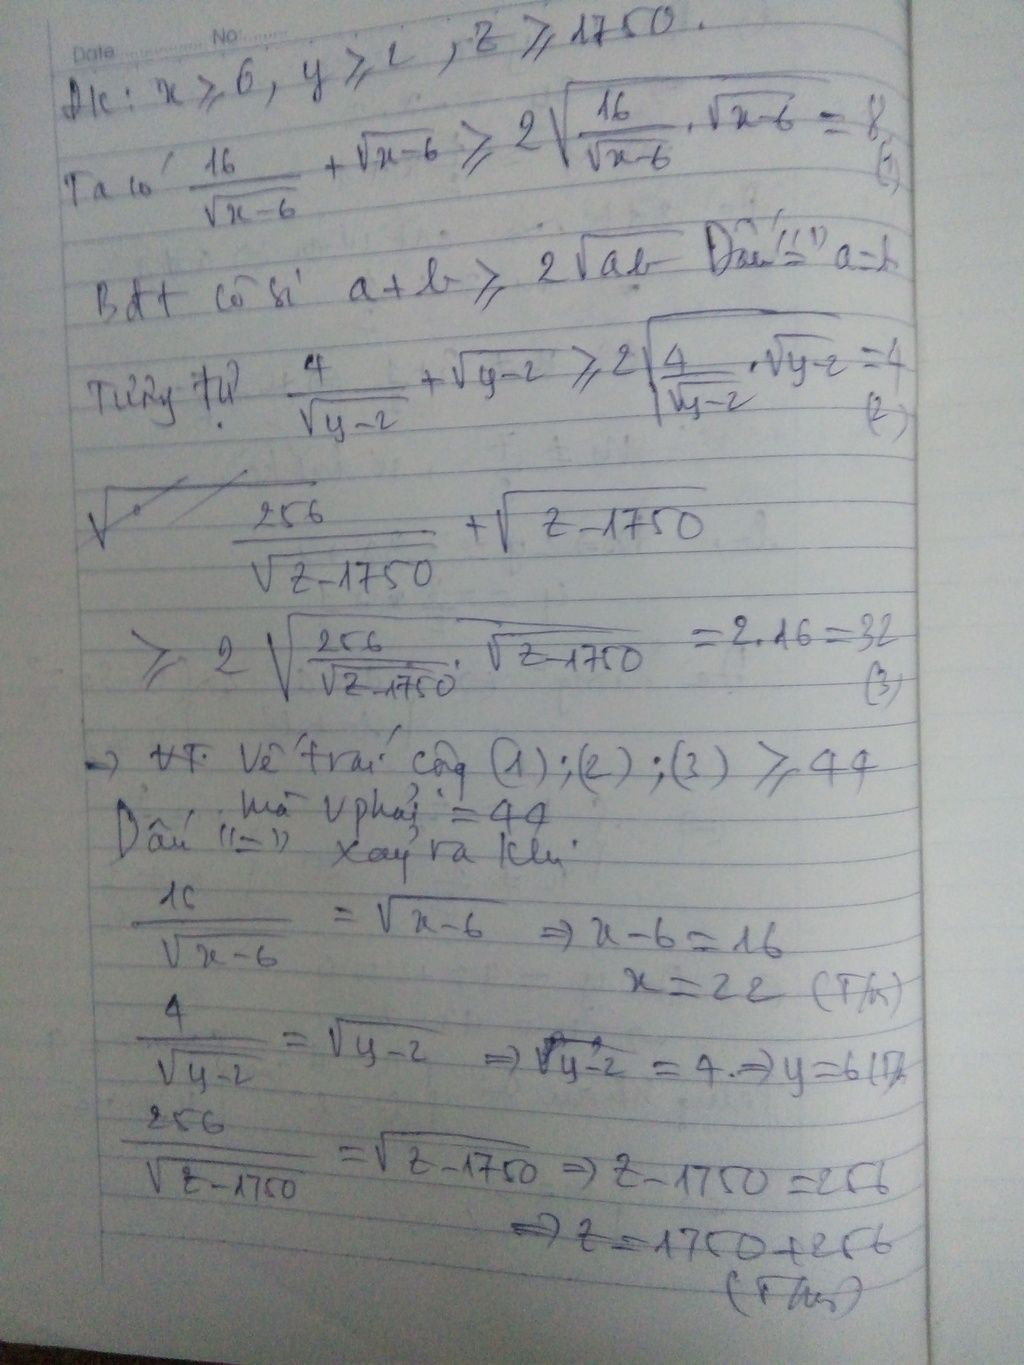 Date No
ĐK: x ≥ 6, y ≥ 2, z ≥ 1750.
Ta có 16/√(x-6) + √(x-6) ≥ 2√(16/√(x-6) . √(x-6)) = 8 (1)
Bđt cô si a+b ≥ 2√ab Dấu "=" a=b
Tương tự 4/√(y-2) + √(y-2) ≥ 2√(4/√(y-2) . √(y-2)) = 4 (2)
256/√(z-1750) + √(z-1750)
≥ 2√(256/√(z-1750) . √(z-1750)) = 2.16 = 32 (3)
=> VT. Vế trái cộng (1);(2);(3) ≥ 44
mà v phải = 44
Dấu "=" xảy ra khi
16/√(x-6) = √(x-6) => x-6 = 16
x = 22 (T/m)
4/√(y-2) = √(y-2) => y-2 = 4. => y = 6 (T/m
256/√(z-1750) = √(z-1750) => z-1750 = 256
=> z = 1750+256
(T/m)